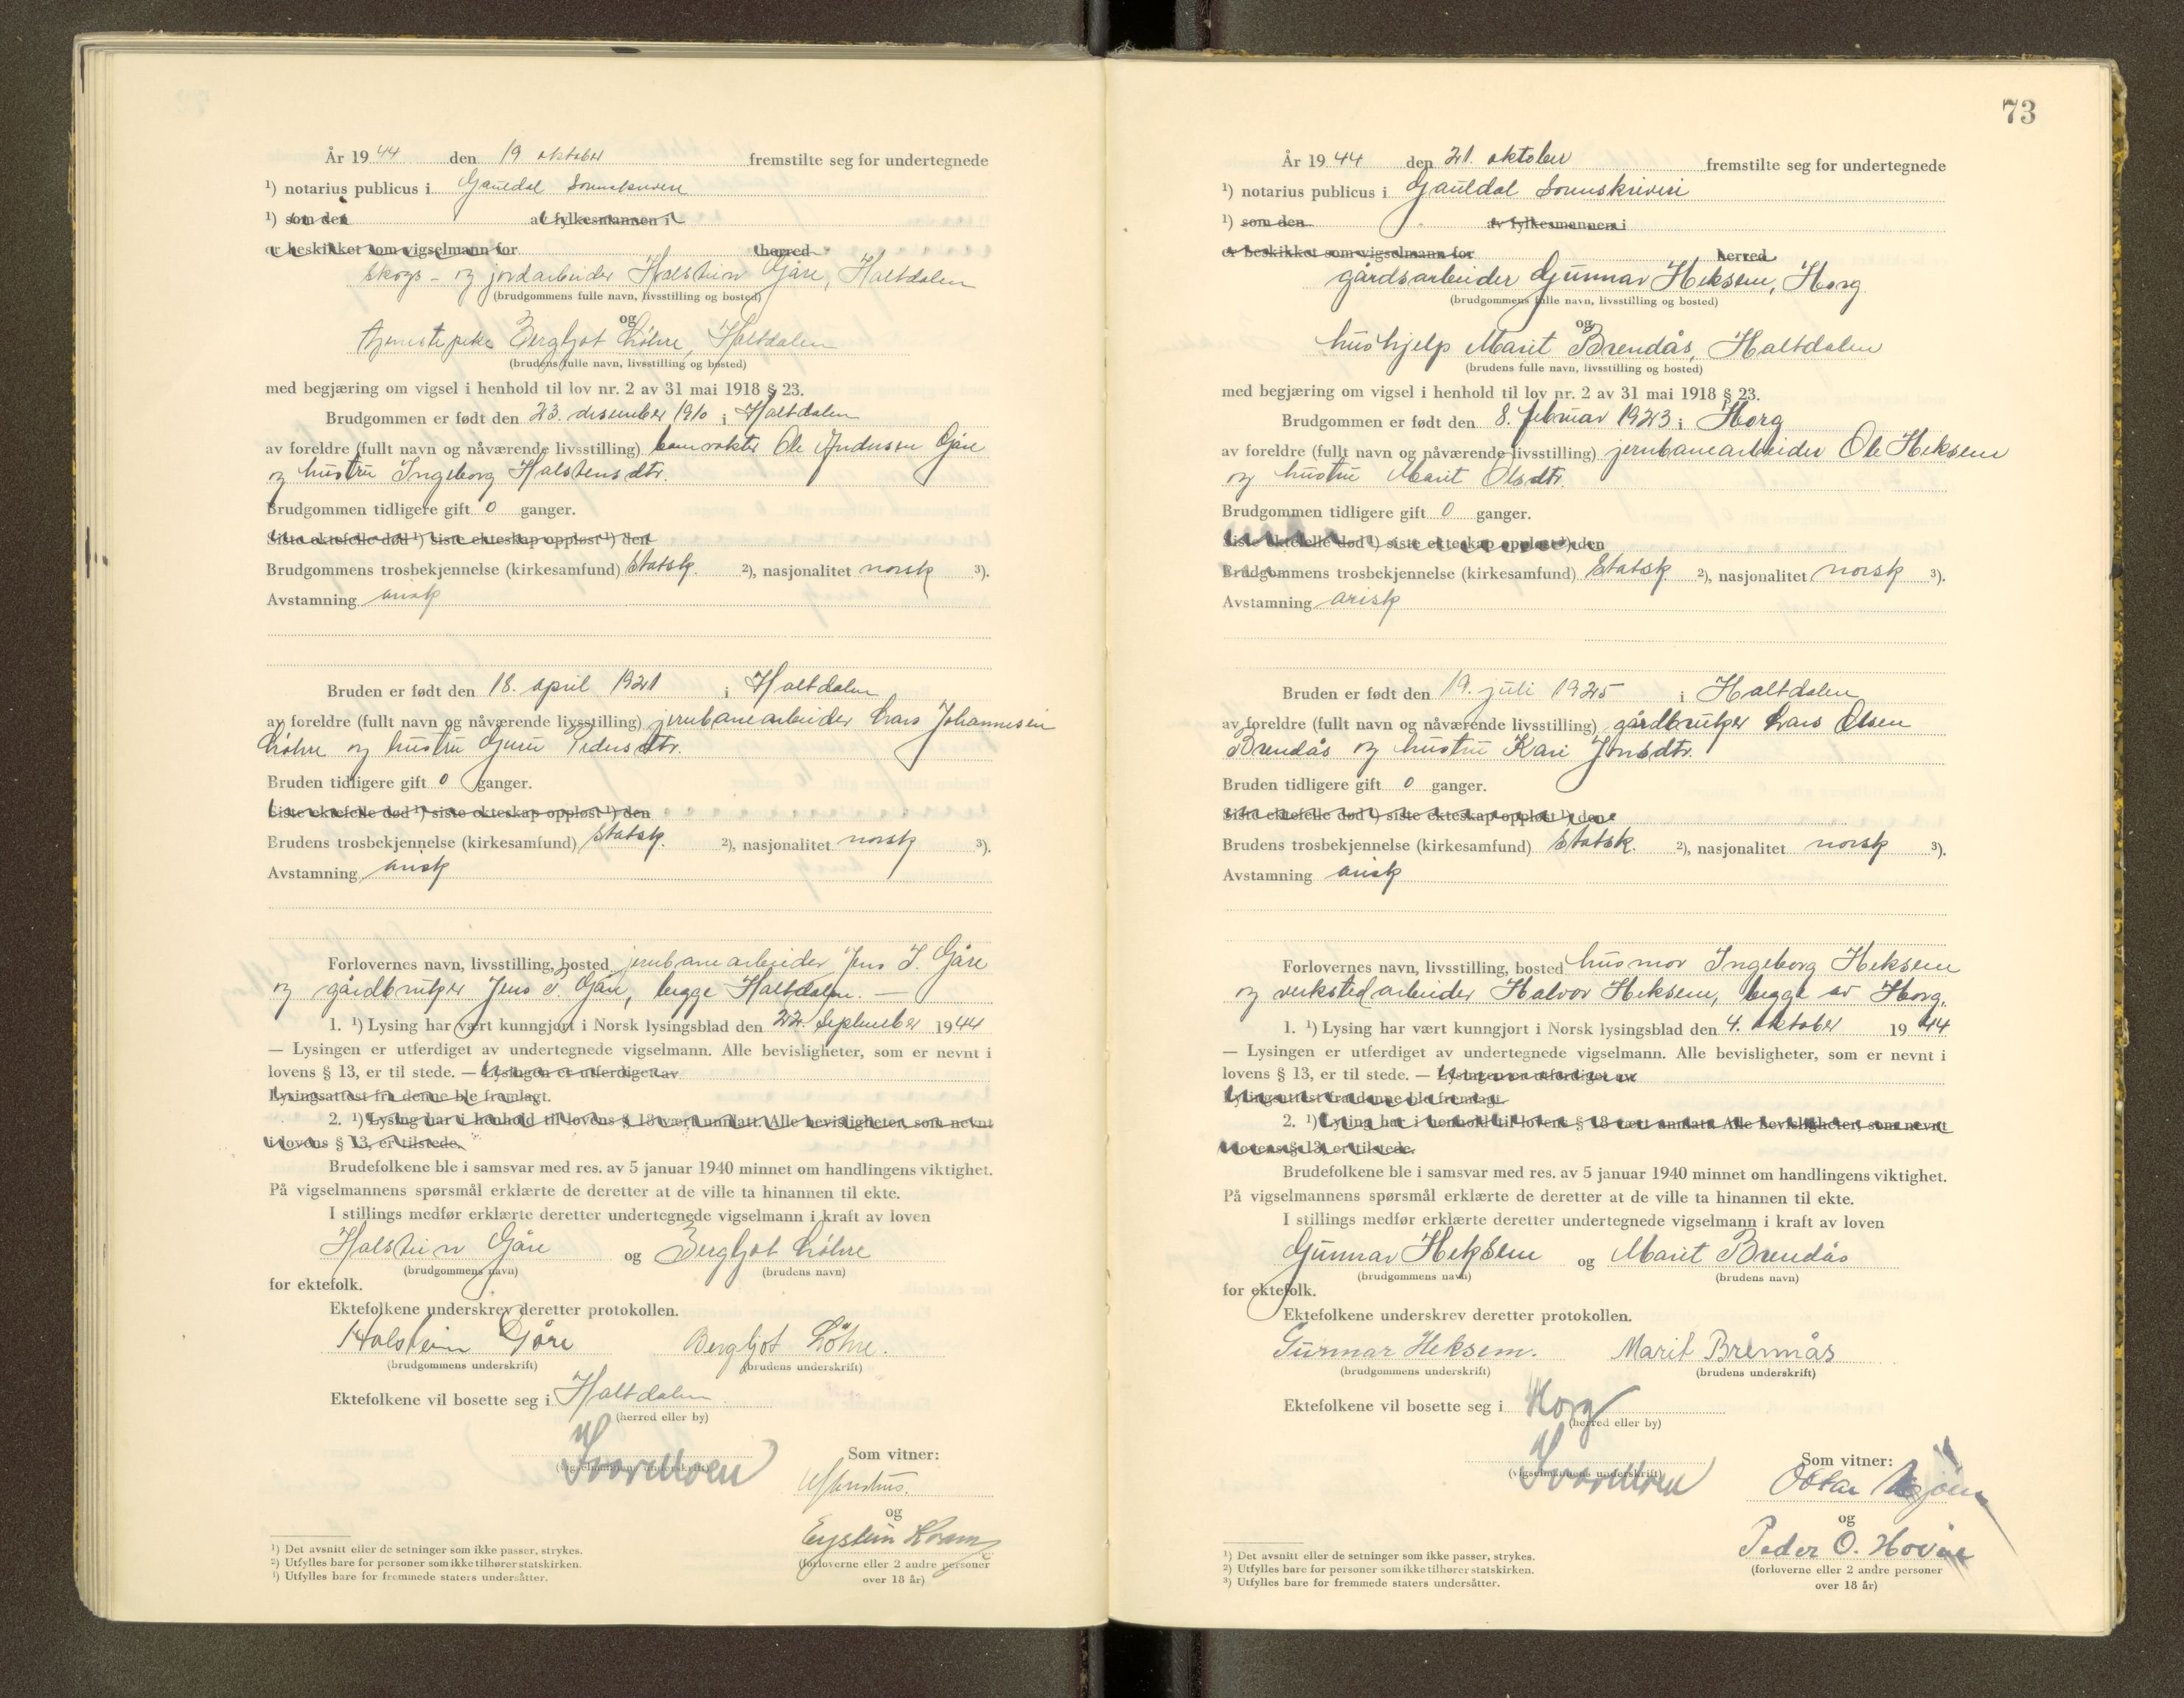 År 1944 den 19 oktober fremstilte seg for undertegnede
¹) notarius publicus i Gauldal Sorenskriveri
¹) som den av fylkesmannen i
er beskikket som vigselmann for herred
skogs- og jordarbeider Halstein Gåre, Haltdalen
(brudgommens fulle navn, livsstilling og bosted)
og
tjenestepike Bergljot Løhre, Haltdalen
(brudens fulle navn, livsstilling og bosted)
med begjæring om vigsel i henhold til lov nr. 2 av 31 mai 1918 § 23.
Brudgommen er født den 23. desember 1910 i Haltdalen
av foreldre (fullt navn og nåværende livsstilling) banevokter Ole Andersen Gåre
og hustru Ingeborg Halstensdtr.
Brudgommen tidligere gift 0 ganger.
Siste ektefelle død ¹) siste ekteskap oppløst ¹) den
Brudgommens trosbekjennelse (kirkesamfund) Statsk. ²), nasjonalitet norsk ³).
Avstamning arisk
Bruden er født den 18. april 1921 i Haltdalen
av foreldre (fullt navn og nåværende livsstilling) jernbanearbeider Lars Johannesen
Løhre og hustru Guru Pedersdtr.
Bruden tidligere gift 0 ganger.
Siste ektefelle død ¹) siste ekteskap oppløst ¹) den
Brudens trosbekjennelse (kirkesamfund) Statsk. ²), nasjonalitet norsk ³).
Avstamning arisk
Forlovernes navn, livsstilling, bosted jernbanearbeider Jens J. Gåre
og gårdbruker Jens Gåre, begge Haltdalen. —
1. ¹) Lysing har vært kunngjort i Norsk lysingsblad den 22. september 1944
— Lysingen er utferdiget av undertegnede vigselmann. Alle bevisligheter, som er nevnt i
lovens § 13, er til stede. — Lysingen er utferdiget av
Lysingsattest fra denne ble fremlagt.
2. ¹) Lysing har i henhold til lovens § 18 vært unnlatt. Alle bevisligheter, som nevnt
i lovens § 13, er tilstede.
Brudefolkene ble i samsvar med res. av 5 januar 1940 minnet om handlingens viktighet.
På vigselmannens spørsmål erklærte de deretter at de ville ta hinannen til ekte.
I stillings medfør erklærte deretter undertegnede vigselmann i kraft av loven
Halstein Gåre og Bergljot Løhre
(brudgommens navn) (brudens navn)
for ektefolk.
Ektefolkene underskrev deretter protokollen.
Halstein Gåre Bergljot Løhre.
(brudgommens underskrift) (brudens underskrift)
Ektefolkene vil bosette seg i Haltdalen
(herred eller by)
Som vitner:
(vigselmannens underskrift)
og
Eystein
(forloverne eller 2 andre personer
over 18 år)
¹) Det avsnitt eller de setninger som ikke passer, strykes.
²) Utfylles bare for personer som ikke tilhører statskirken.
³) Utfylles bare for fremmede staters undersåtter.
73
År 1944 den 21. oktober fremstilte seg for undertegnede
¹) notarius publicus i Gauldal Sorenskriveri
¹) som den av fylkesmannen i
er beskikket som vigselmann for herred
gårdsarbeider Gunnar Heksem, Horg
(brudgommens fulle navn, livsstilling og bosted)
og
hushjelp Marit Brendås, Haltdalen
(brudens fulle navn, livsstilling og bosted)
med begjæring om vigsel i henhold til lov nr. 2 av 31 mai 1918 § 23.
Brudgommen er født den 8. februar 1923 i Horg
av foreldre (fullt navn og nåværende livsstilling) jernbanearbeider Ole Heksem
og hustru Marit Olsdtr.
Brudgommen tidligere gift 0 ganger.
Siste ektefelle død ¹) siste ekteskap oppløst ¹) den
Brudgommens trosbekjennelse (kirkesamfund) Statsk. ²), nasjonalitet norsk ³).
Avstamning arisk
Bruden er født den 19. juli 1925 i Haltdalen
av foreldre (fullt navn og nåværende livsstilling) gårdbruker Lars Olsen
Brendås og hustru Kari Jonsdtr.
Bruden tidligere gift 0 ganger.
Siste ektefelle død ¹) siste ekteskap oppløst ¹) den
Brudens trosbekjennelse (kirkesamfund) Statsk. ²), nasjonalitet norsk ³).
Avstamning arisk
Forlovernes navn, livsstilling, bosted husmor Ingeborg Heksem
og verkstedarbeider Halvor Heksem, begge av Horg.
1. ¹) Lysing har vært kunngjort i Norsk lysingsblad den 4. oktober 1944
— Lysingen er utferdiget av undertegnede vigselmann. Alle bevisligheter, som er nevnt i
lovens § 13, er til stede. — Lysingen er utferdiget av
Lysingsattest fra denne ble fremlagt.
2. ¹) Lysing har i henhold til lovens § 18 vært unnlatt. Alle bevisligheter, som nevnt
i lovens § 13, er tilstede.
Brudefolkene ble i samsvar med res. av 5 januar 1940 minnet om handlingens viktighet.
På vigselmannens spørsmål erklærte de deretter at de ville ta hinannen til ekte.
I stillings medfør erklærte deretter undertegnede vigselmann i kraft av loven
Gunnar Heksem og Marit Brendås
(brudgommens navn) (brudens navn)
for ektefolk.
Ektefolkene underskrev deretter protokollen.
Gunnar Heksem. Marit Brennås
(brudgommens underskrift) (brudens underskrift)
Ektefolkene vil bosette seg i Horg
(herred eller by)
Som vitner:
(vigselmannens underskrift)
Oskar
og
Peder O. Hovin
(forloverne eller 2 andre personer
over 18 år)
¹) Det avsnitt eller de setninger som ikke passer, strykes.
²) Utfylles bare for personer som ikke tilhører statskirken.
³) Utfylles bare for fremmede staters undersåtter.